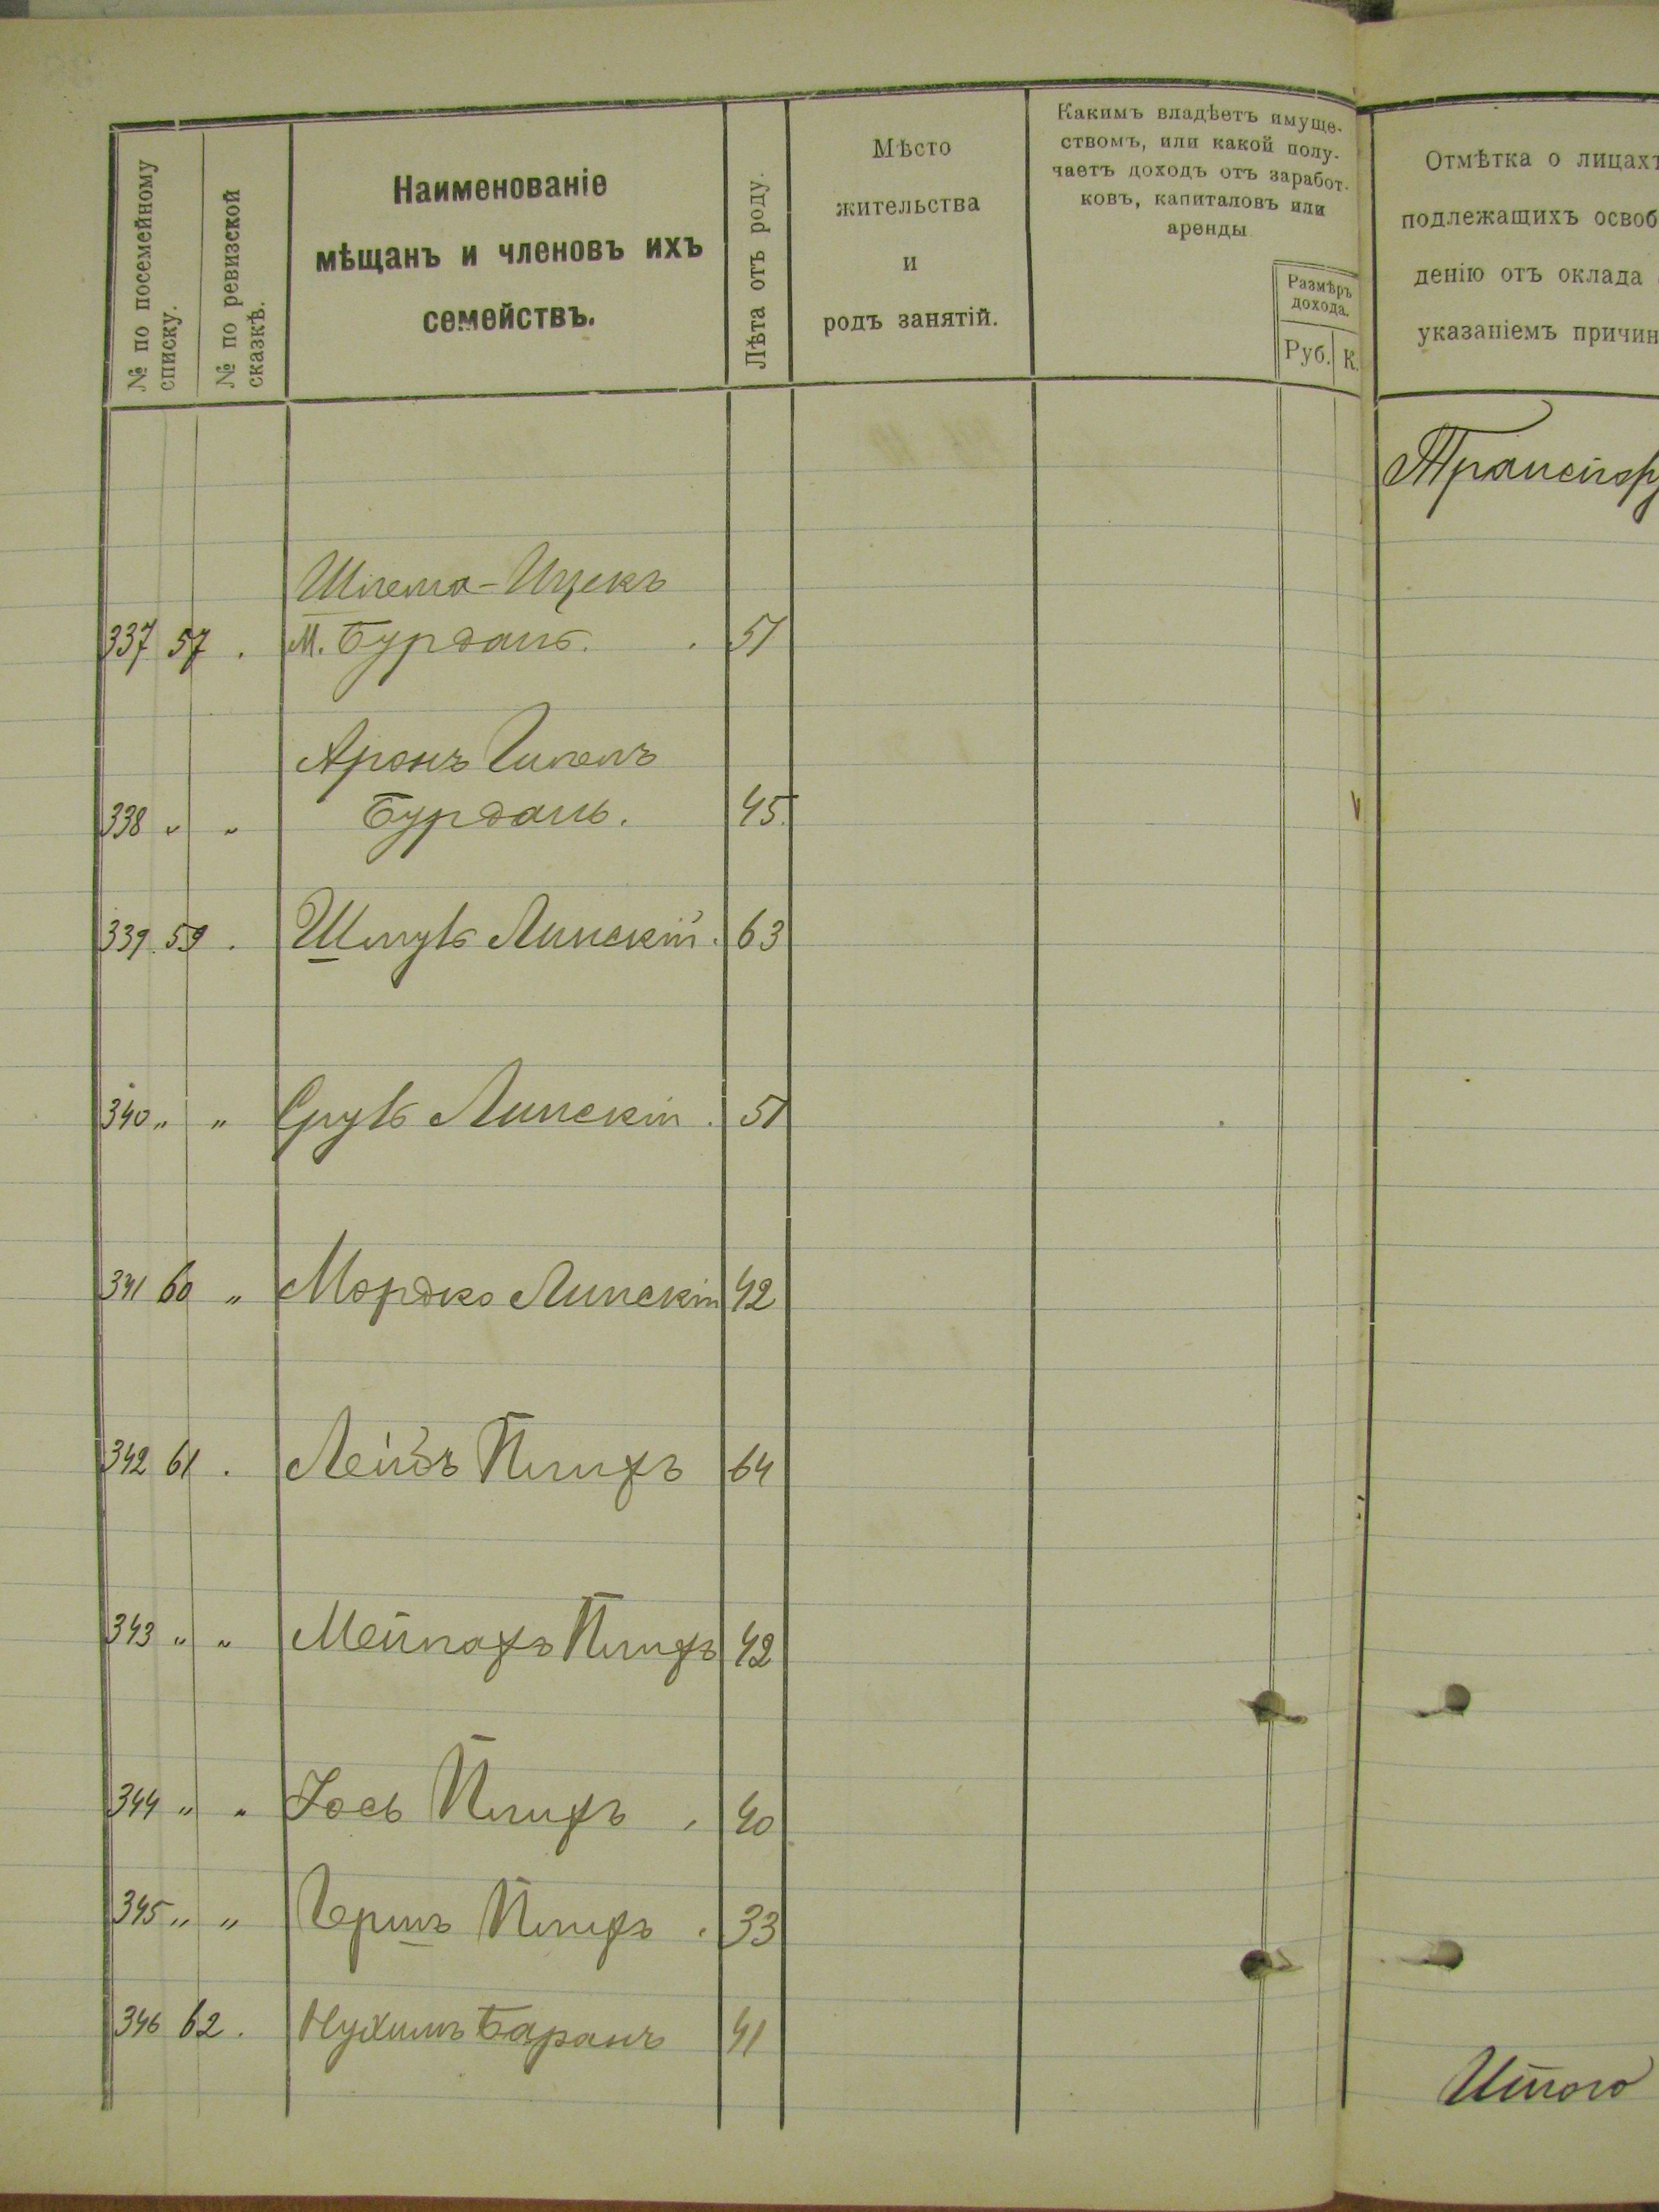 № по посемейному
списку.
№ по ревизской
сказкѣ.
Наименованіе
мѣщанъ и членовъ ихъ
семействъ.
Лѣта отъ роду.
Мѣсто
жительства
и
родъ занятій.
Какимъ владѣетъ имуще-
ствомъ, или какой полу-
чаетъ доходъ отъ заработ-
ковъ, капиталовъ или
аренды
Размѣръ
дохода.
Руб. К.
Отмѣтка о лицахъ
подлежащихъ освоб
денію отъ оклада
указаніемъ причин
Транспор
Шлема-Ицекъ
337 57 . М. Бурданъ. . 51
Аронъ Гилелъ
338 " " Бурданъ. 45.
339 59 . Шмуль Липскій. 63
340 " " Сруль Липскій . 51
341 60 " Мордко Липскій 42
342 61 . Лейбъ 64
343 " " 42
344 " " Іось . 40
345 " " Гершъ . 33
346 62 . Нухимъ Баранъ 41
Итого